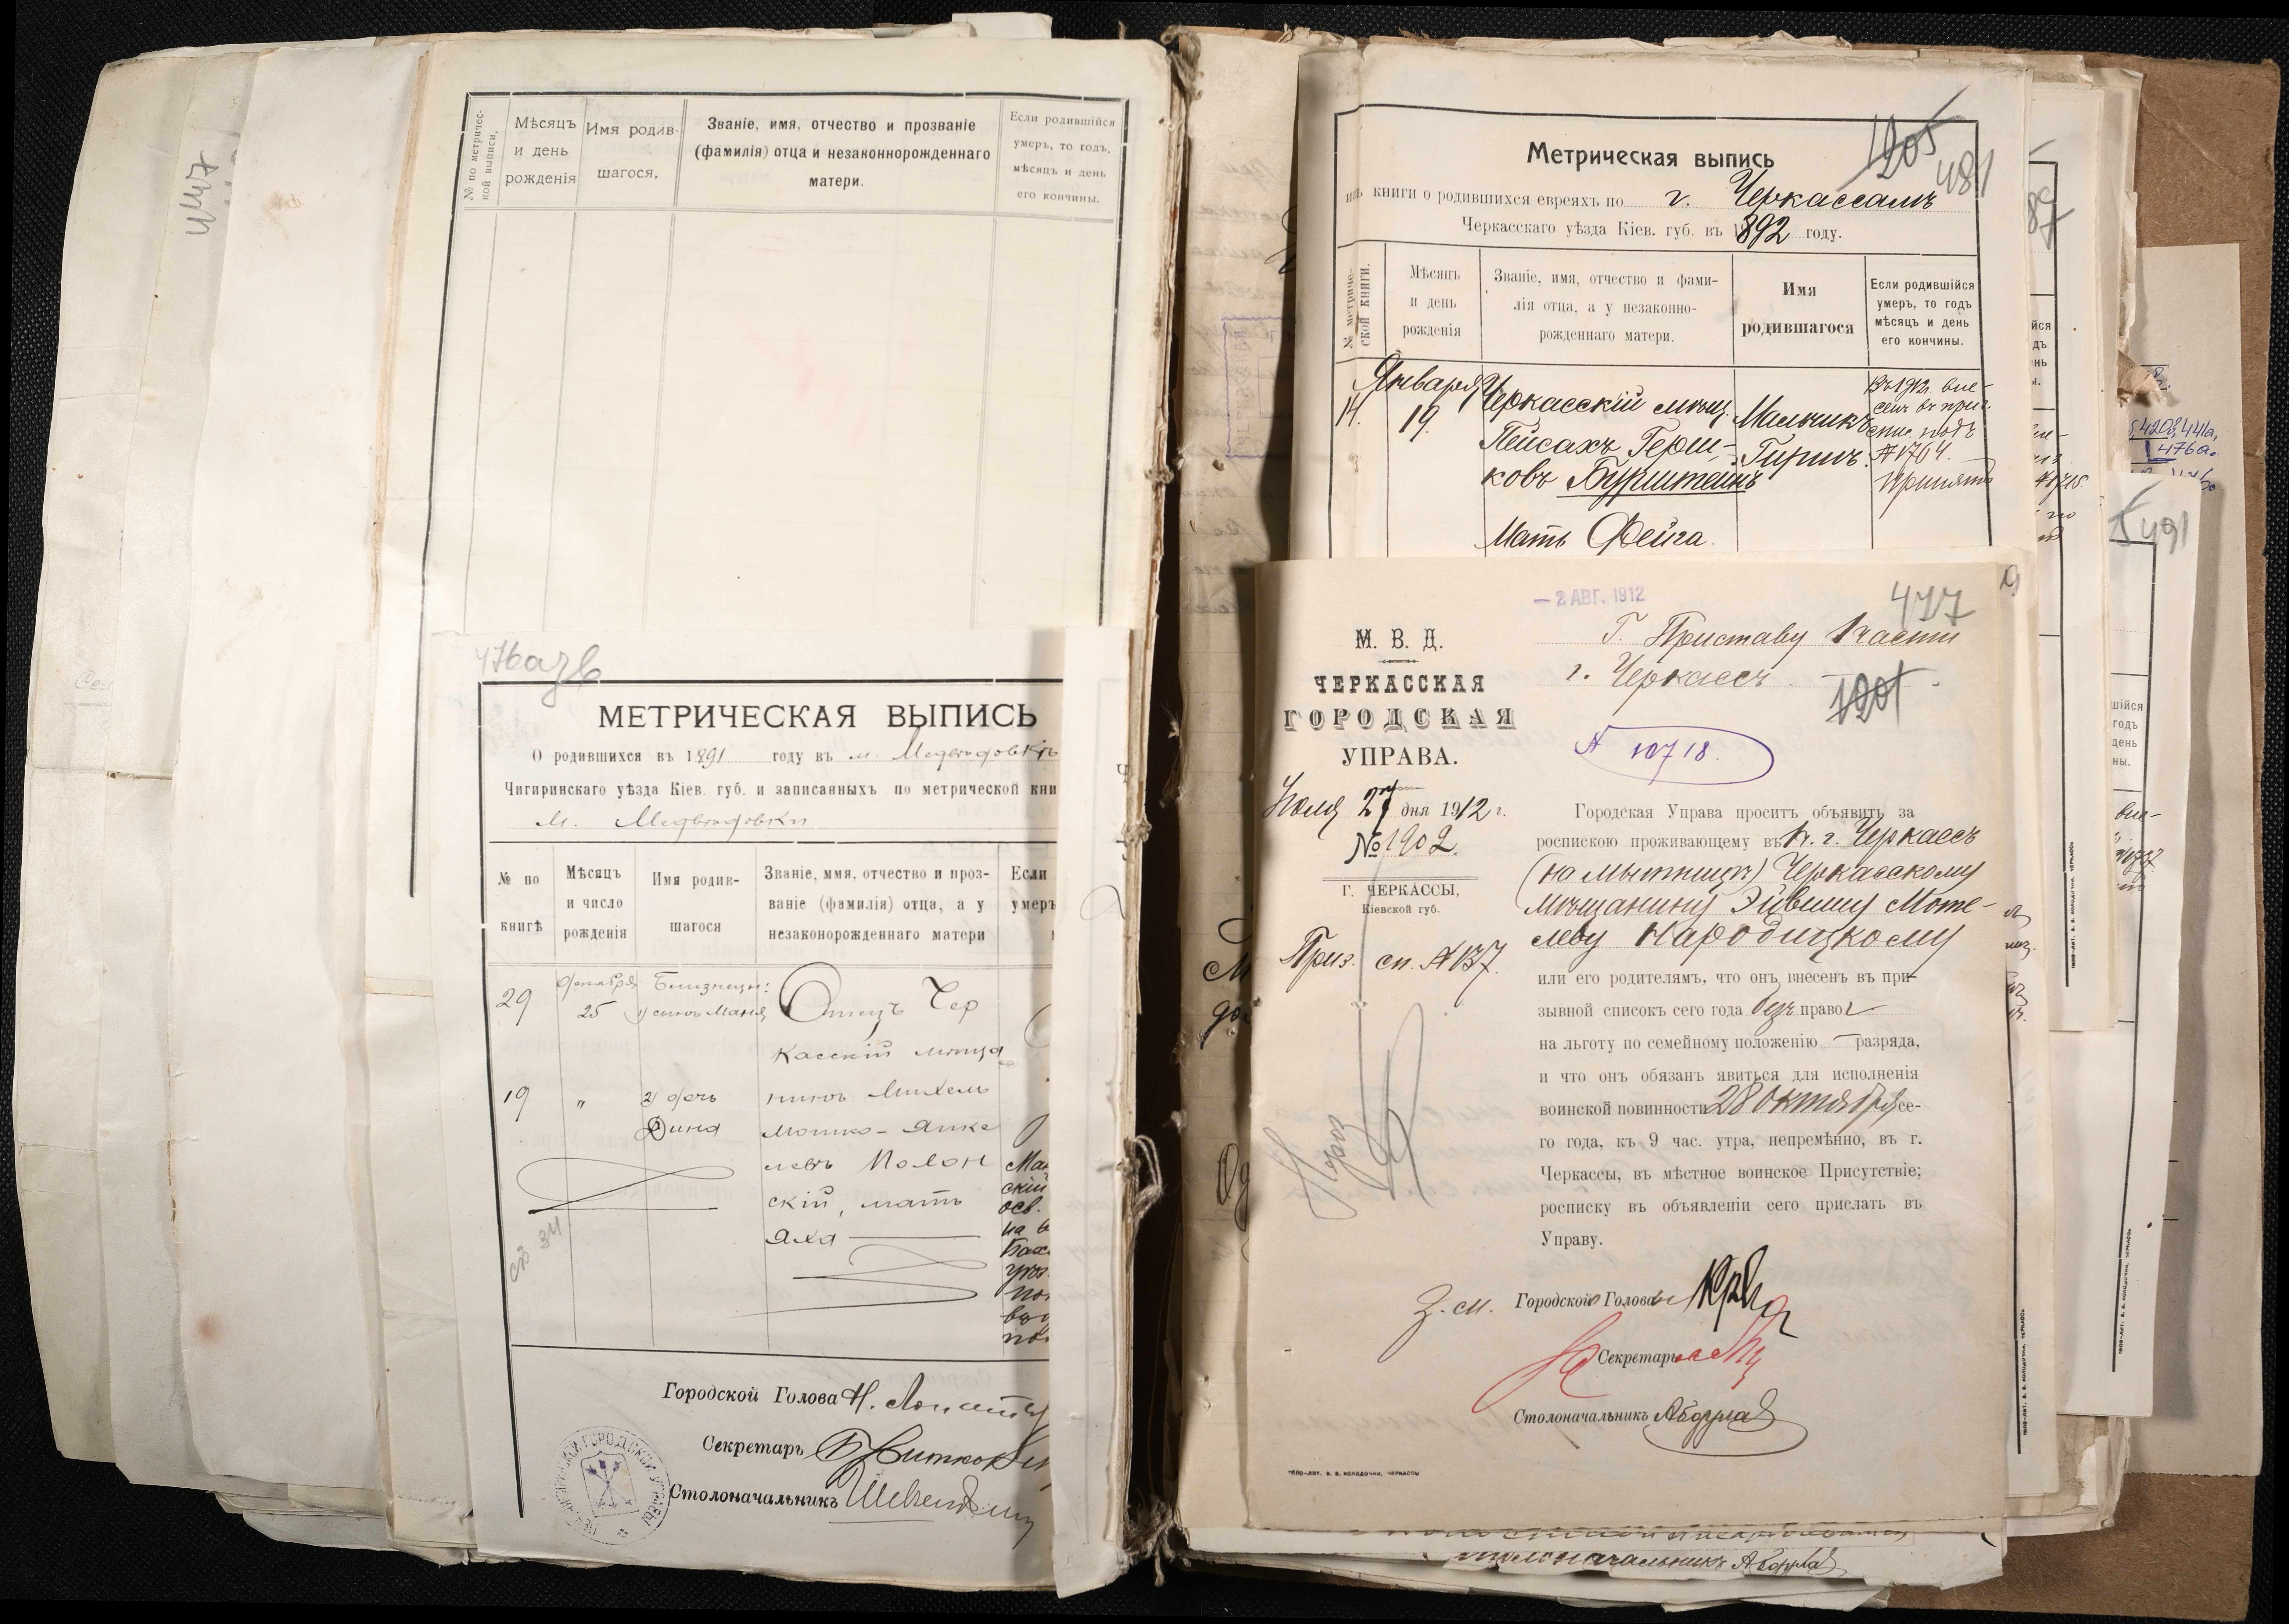 4447
№ по метричес-
кой выписи.
Мѣсяцъ
и день
рожденія
Имя родив-
шагося,
Званіе, имя, отчество и прозваніе
(фамилія) отца и незаконнорожденнаго
матери.
Если родившійся
умеръ, то годъ,
мѣсяцъ и день
его кончины.
476а
МЕТРИЧЕСКАЯ ВЫПИСЬ
О родившихся въ 1891 году въ м. Медвѣдовкѣ
Чигиринскаго уѣзда Кіев. губ. и записанныхъ по метрической кни
м. Медвѣдовки
№ по
книгѣ
Мѣсяцъ
и число
рожденія
Имя родив-
шагося
Званіе, имя, отчество и проз-
ваніе (фамилія) отца, а у
незаконорожденнаго матери
Если
умеръ
29
Декабря
25
Близнецы:
1) сынъ Маня
Отецъ Чер
касскій мѣща
19 " 2) дочь
Дина
нинъ Михель
Мошко-Янке
левъ Полон
скій, мать
Яха
Городской Голова Н.
Секретарь
Столоначальникъ
Метрическая выпись
1205
481
изъ книги о родившихся евреяхъ по г. Черкассамъ
Черкасскаго уѣзда Кіев. губ. въ 1892 году.
№ метриче-
ской книги.
Мѣсяцъ
и день
рожденія
Званіе, имя, отчество и фами-
лія отца, а у незаконно-
рожденнаго матери.
Имя
родившагося
Если родившійся
умеръ, то годъ
мѣсяцъ и день
его кончины.
Января
14. 19.
Черкасскій мѣщ.
Пейсахъ Герш-
ковъ Бурштейнъ
Мать Фейга.
Мальчикъ
Гиршъ.
Въ 1912 г. вне-
сенъ въ приз.
спис. подъ
№ 1764.
Принятъ
— 2 АВГ. 1912
477
М. В. Д.
ЧЕРКАССКАЯ
ГОРОДСКАЯ
УПРАВА.
Іюля 27 дня 1912 г.
№ 1902.
Г. ЧЕРКАССЫ,
Кіевской губ.
Приз. сп. № 137.
Г. Приставу 1 части
г. Черкассъ.
1201
№ 10718.
Городская Управа проситъ объявить за
роспискою проживающему въ г. Черкассъ
(на Мытницѣ) Черкасскому
мѣщанину Эйвешу Моте-
леву Народицкому
или его родителямъ, что онъ внесенъ въ при-
зывной списокъ сего года безъ права
на льготу по семейному положенію — разряда,
и что онъ обязанъ явиться для исполненія
воинской повинности 28 Октября се-
го года, къ 9 час. утра, непремѣнно, въ г.
Черкассы, въ мѣстное воинское Присутствіе;
росписку въ объявленіи сего прислать въ
Управу.
З. м. Городского Головы
Секретарь
Столоначальникъ
ТИПО-ЛИТ. В. В. КОЛОДОЧКИ, ЧЕРКАССЫ
491
Столоначальникъ